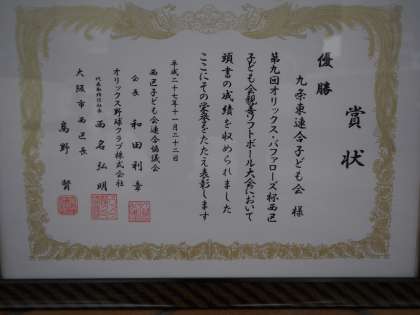 賞状
優勝
九条東連合子ども会 様
第九回オリックス・バファローズ杯西区
子ども会親善ソフトボール大会において
頭書の成績を収められました
ここにその栄誉をたたえ表彰します
平成二十七年十一月二十二日
西区子ども会連合協議会
会長 和田利章
オリックス野球クラブ株式会社
代表取締役社長 西名弘明
大阪市西区長
高野賢